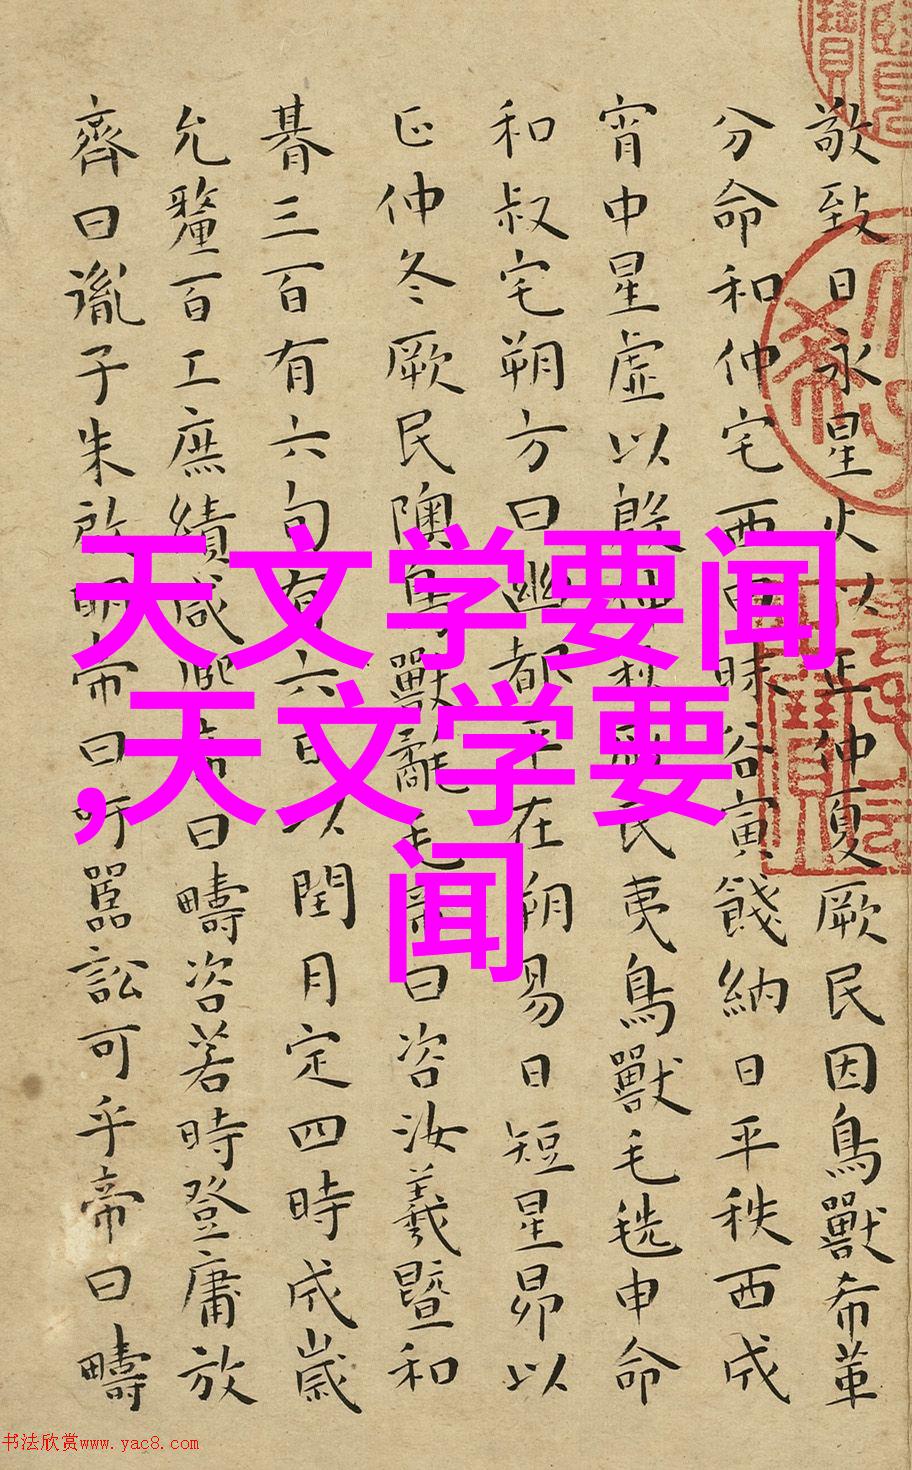 敬致日永星火以正仲夏厥民因鳥獸希革
分命和仲宅西曰昧谷寅餞納日平秩西成
宵中星虛以殷仲秋厥民夷鳥獸毛毨申命
和叔宅朔方曰幽都平在朔易日短星昴以
正仲冬厥民隩鳥獸氄毛帝曰咨汝羲暨和
朞三百有六旬有六日以閏月定四時成歲
允釐百工庶績咸熙帝曰疇咨若時登庸放
齊曰胤子朱啟明帝曰吁嚚訟可乎帝曰疇
天文学要闻
,天文学要
闻
书法欣赏www.yac8.com